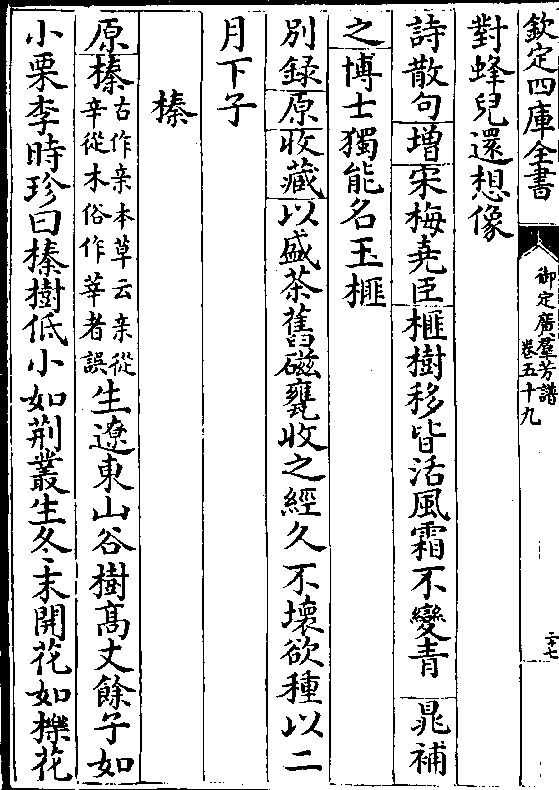 欽定四庫全書
御定廣羣芳譜
卷五十九
二十七
對蜂兒還想像
詩散句增宋梅堯臣榧樹移皆活風霜不變青　晁補
之博士獨能名玉榧
別錄原收藏以盛茶舊磁甕收之經久不壞欲種以二
月下子
榛
原榛古作亲本草云亲從辛從木俗作莘者誤生遼東山谷樹髙丈餘子如
小栗李時珍曰榛樹低小如荆叢生冬末開花如櫟花